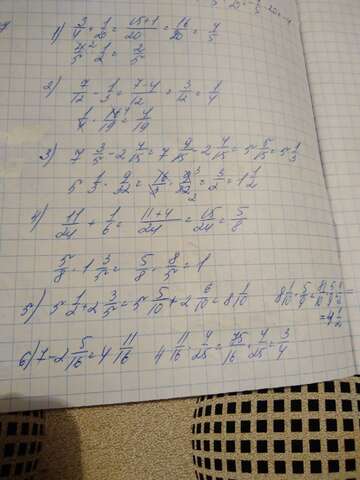 1) 3/4 + 1/20 = (15+1)/20 = 16/20 = 4/5
4/5 · 1/2 = 2/5
2) 7/12 - 1/3 = (7-4)/12 = 3/12 = 1/4
1/4 · 16/19 = 4/19
3) 7 3/5 - 2 4/15 = 7 9/15 - 2 4/15 = 5 5/15 = 5 1/3
5 1/3 · 9/32 = 16/3 · 9/32 = 3/2 = 1 1/2
4) 11/24 + 1/6 = (11+4)/24 = 15/24 = 5/8
5/8 · 1 3/5 = 5/8 · 8/5 = 1
5) 5 1/2 + 2 3/5 = 5 5/10 + 2 6/10 = 8 1/10
= 4 1/2
6) 7 - 2 5/16 = 4 11/16 4 11/16 · 4/25 = 75/16 · 4/25 = 3/4